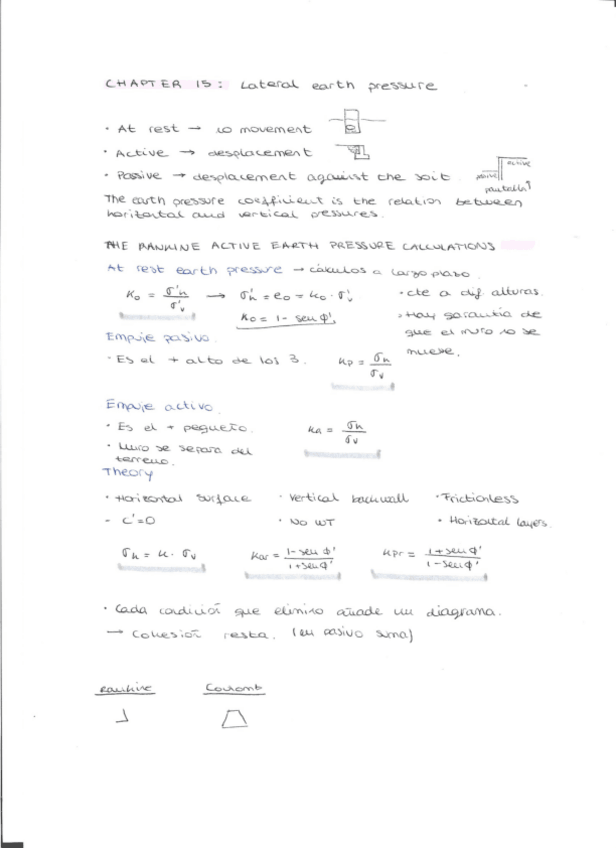 CHAPTER 15: Lateral earth pressure
· At rest → no movement
· Active → desplacement
· Passive → desplacement against the soil.
active
passive
pantalla
The earth pressure coefficient is the relation between
horizontal and vertical pressures.
THE RANKINE ACTIVE EARTH PRESSURE CALCULATIONS
At rest earth pressure → cálculos a largo plazo.
K₀ = σ'h / σ'v → σ'h = e₀ = K₀ · σ'v
K₀ = 1 - sen ϕ'
· cte a dif. alturas.
· Hay garantía de
que el muro no se
mueve.
Empuje pasivo.
· Es el + alto de los 3.
Kp = σh / σv
Empuje activo.
· Es el + pequeño.
Ka = σh / σv
· Muro se separa del
terreno.
Theory
· Horizontal surface · Vertical backwall · Frictionless
- c'=0 · No WT · Horizontal layers.
σh = K · σv
Kar = 1-sen ϕ' / 1+sen ϕ'
Kpr = 1+sen ϕ' / 1-sen ϕ'
· Cada condición que elimino añade un diagrama.
→ Cohesión resta. (en pasivo suma)
Rankine Coulomb